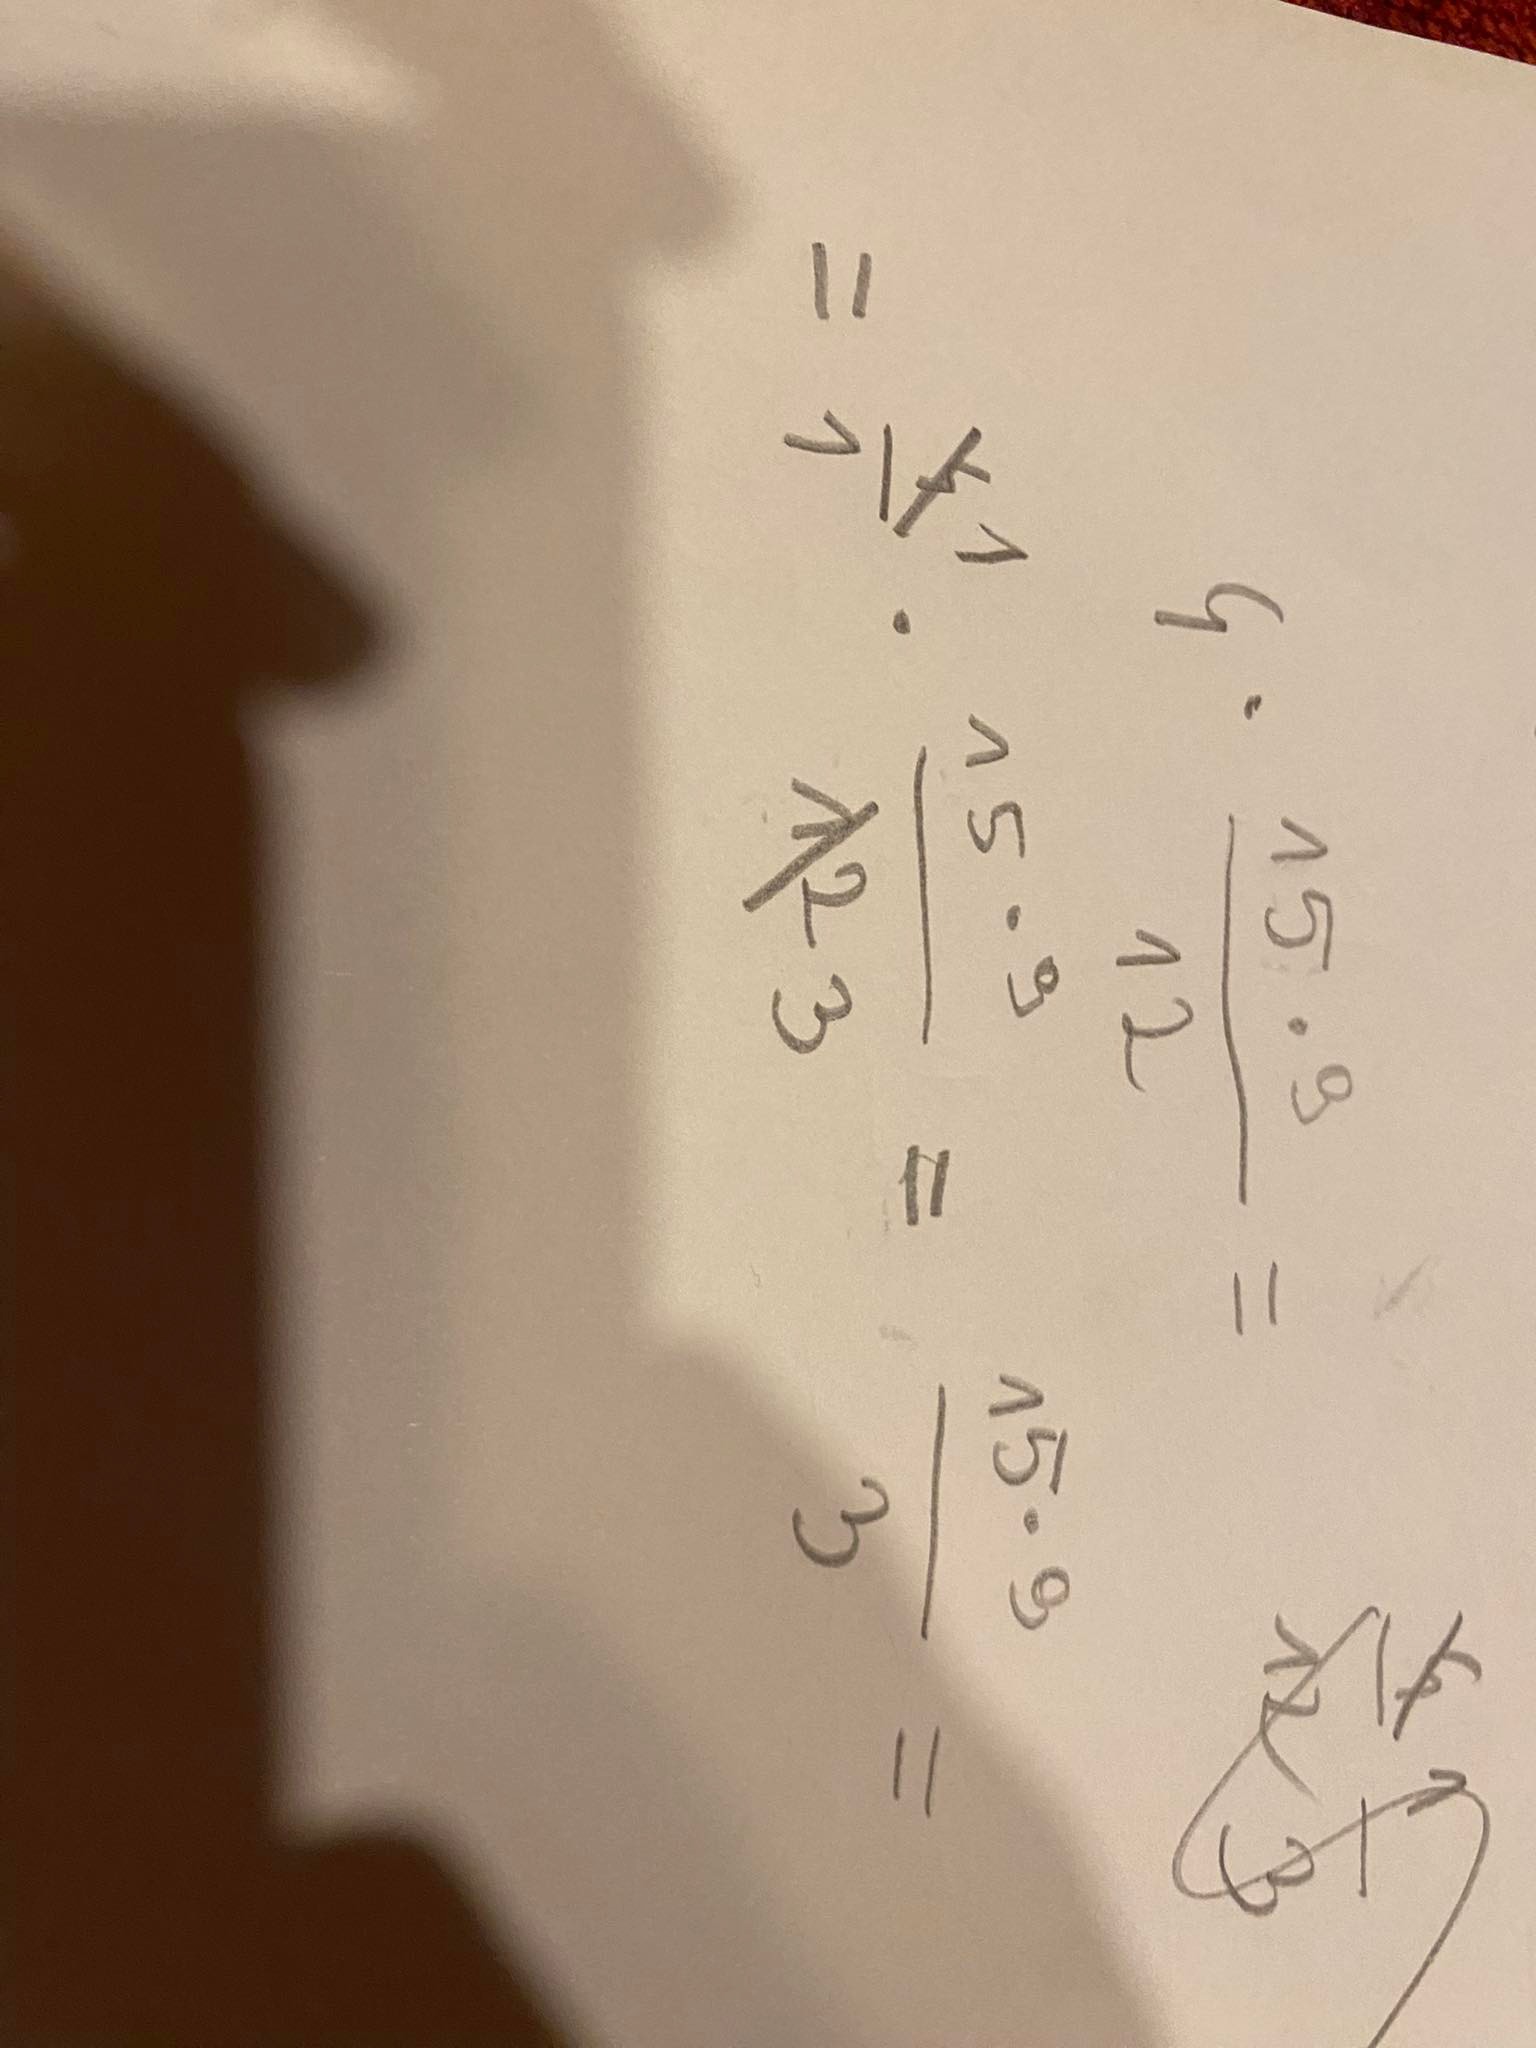 4 · 15 · 9 / 12 =
4 / 12 1 / 3
= 4 1 / 1 · 15 · 9 / 12 3 = 15 · 9 / 3 =